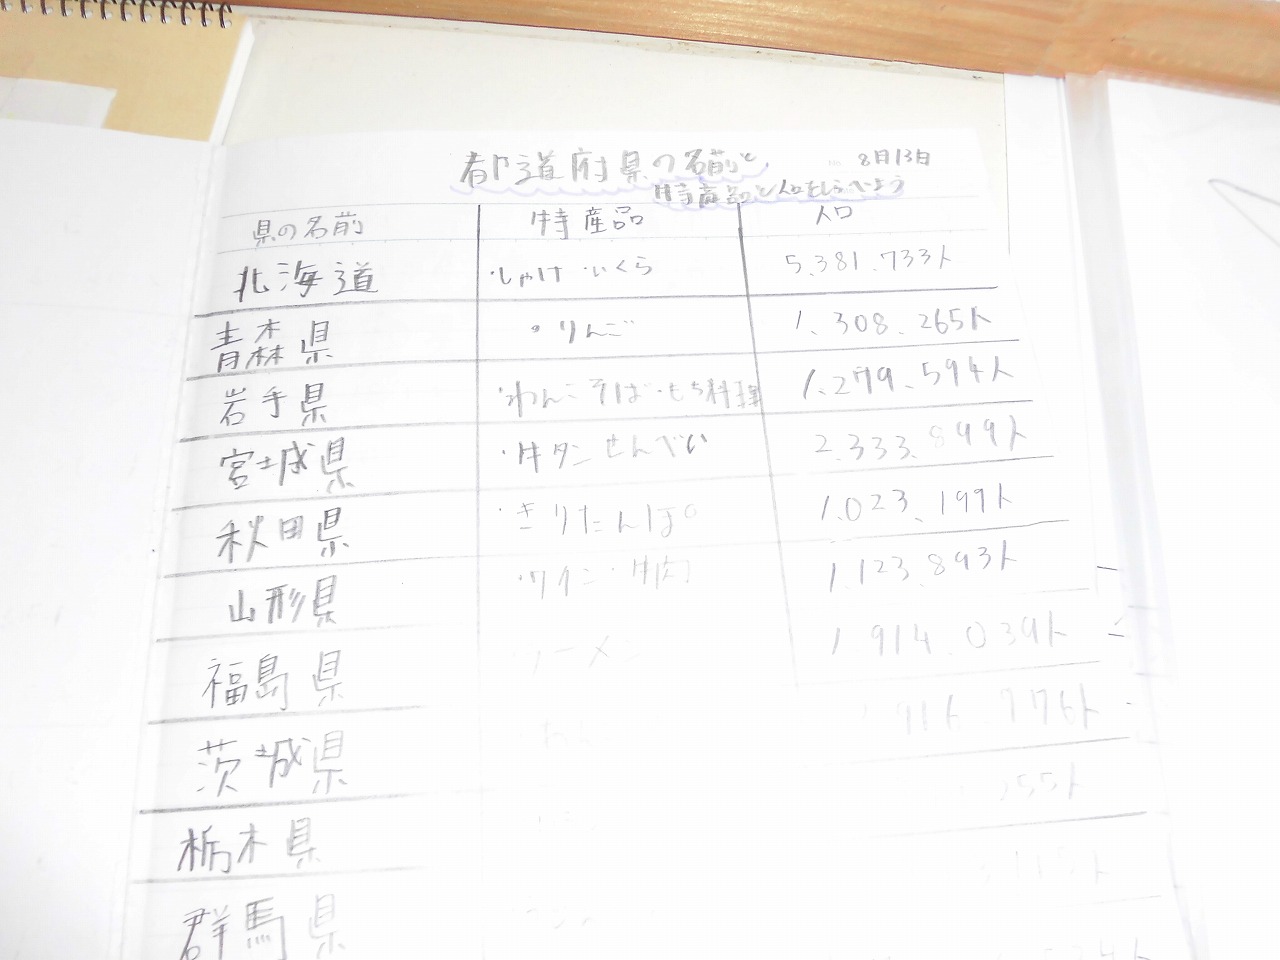 都道府県の名前と、 8月13日
特産品と人口をしらべよう
県の名前 特産品 人口
北海道 ・しゃけ ・いくら 5.381.733人
青森県 ・りんご 1.308.265人
岩手県 ・わんこそば・もち料理 1.279.594人
宮城県 ・牛タンせんべい 2.333.899人
秋田県 ・きりたんぽ 1.023.199人
山形県 ・ワイン・牛肉 1.123.893人
福島県 ラーメン 1.914.039人
茨城県 916.776人
栃木県 255人
群馬県